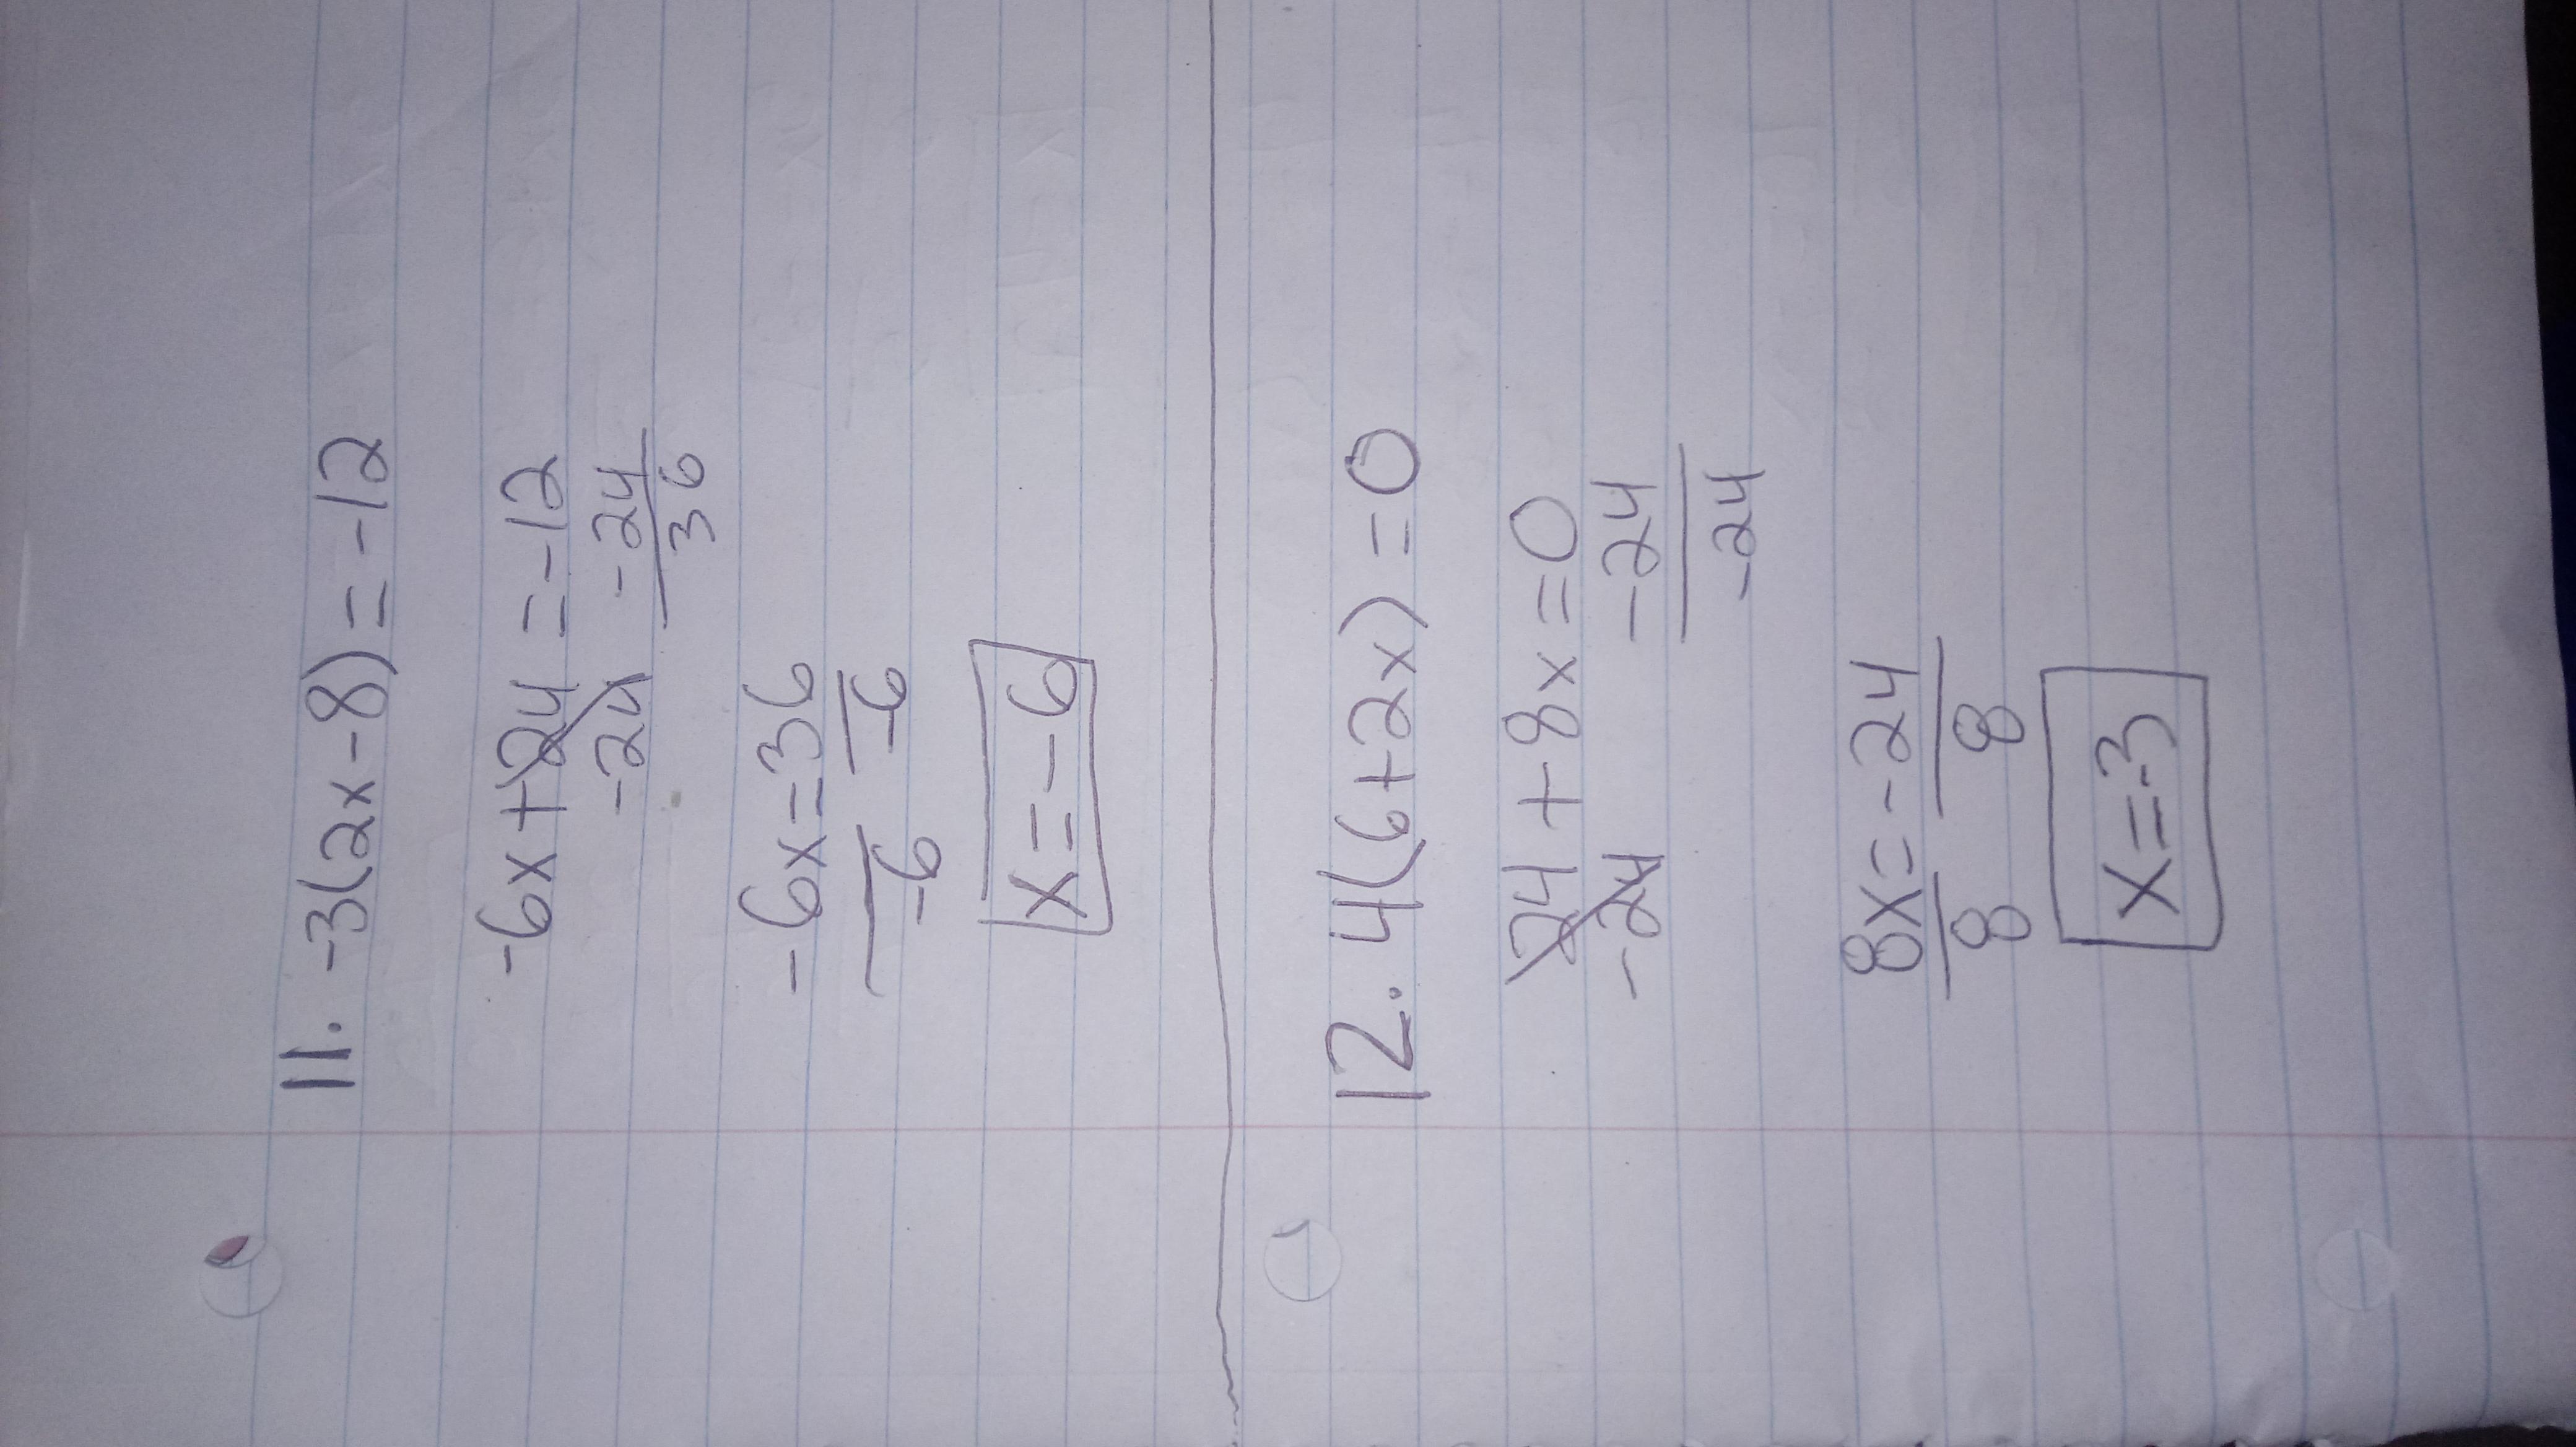 11. -3(2x-8)=-12
-6x+24=-12
-24 -24
36
-6x=36
-6 -6
x=-6
12. 4(6+2x)=0
24+8x=0
-24 -24
-24
8x=-24
8 8
x=-3